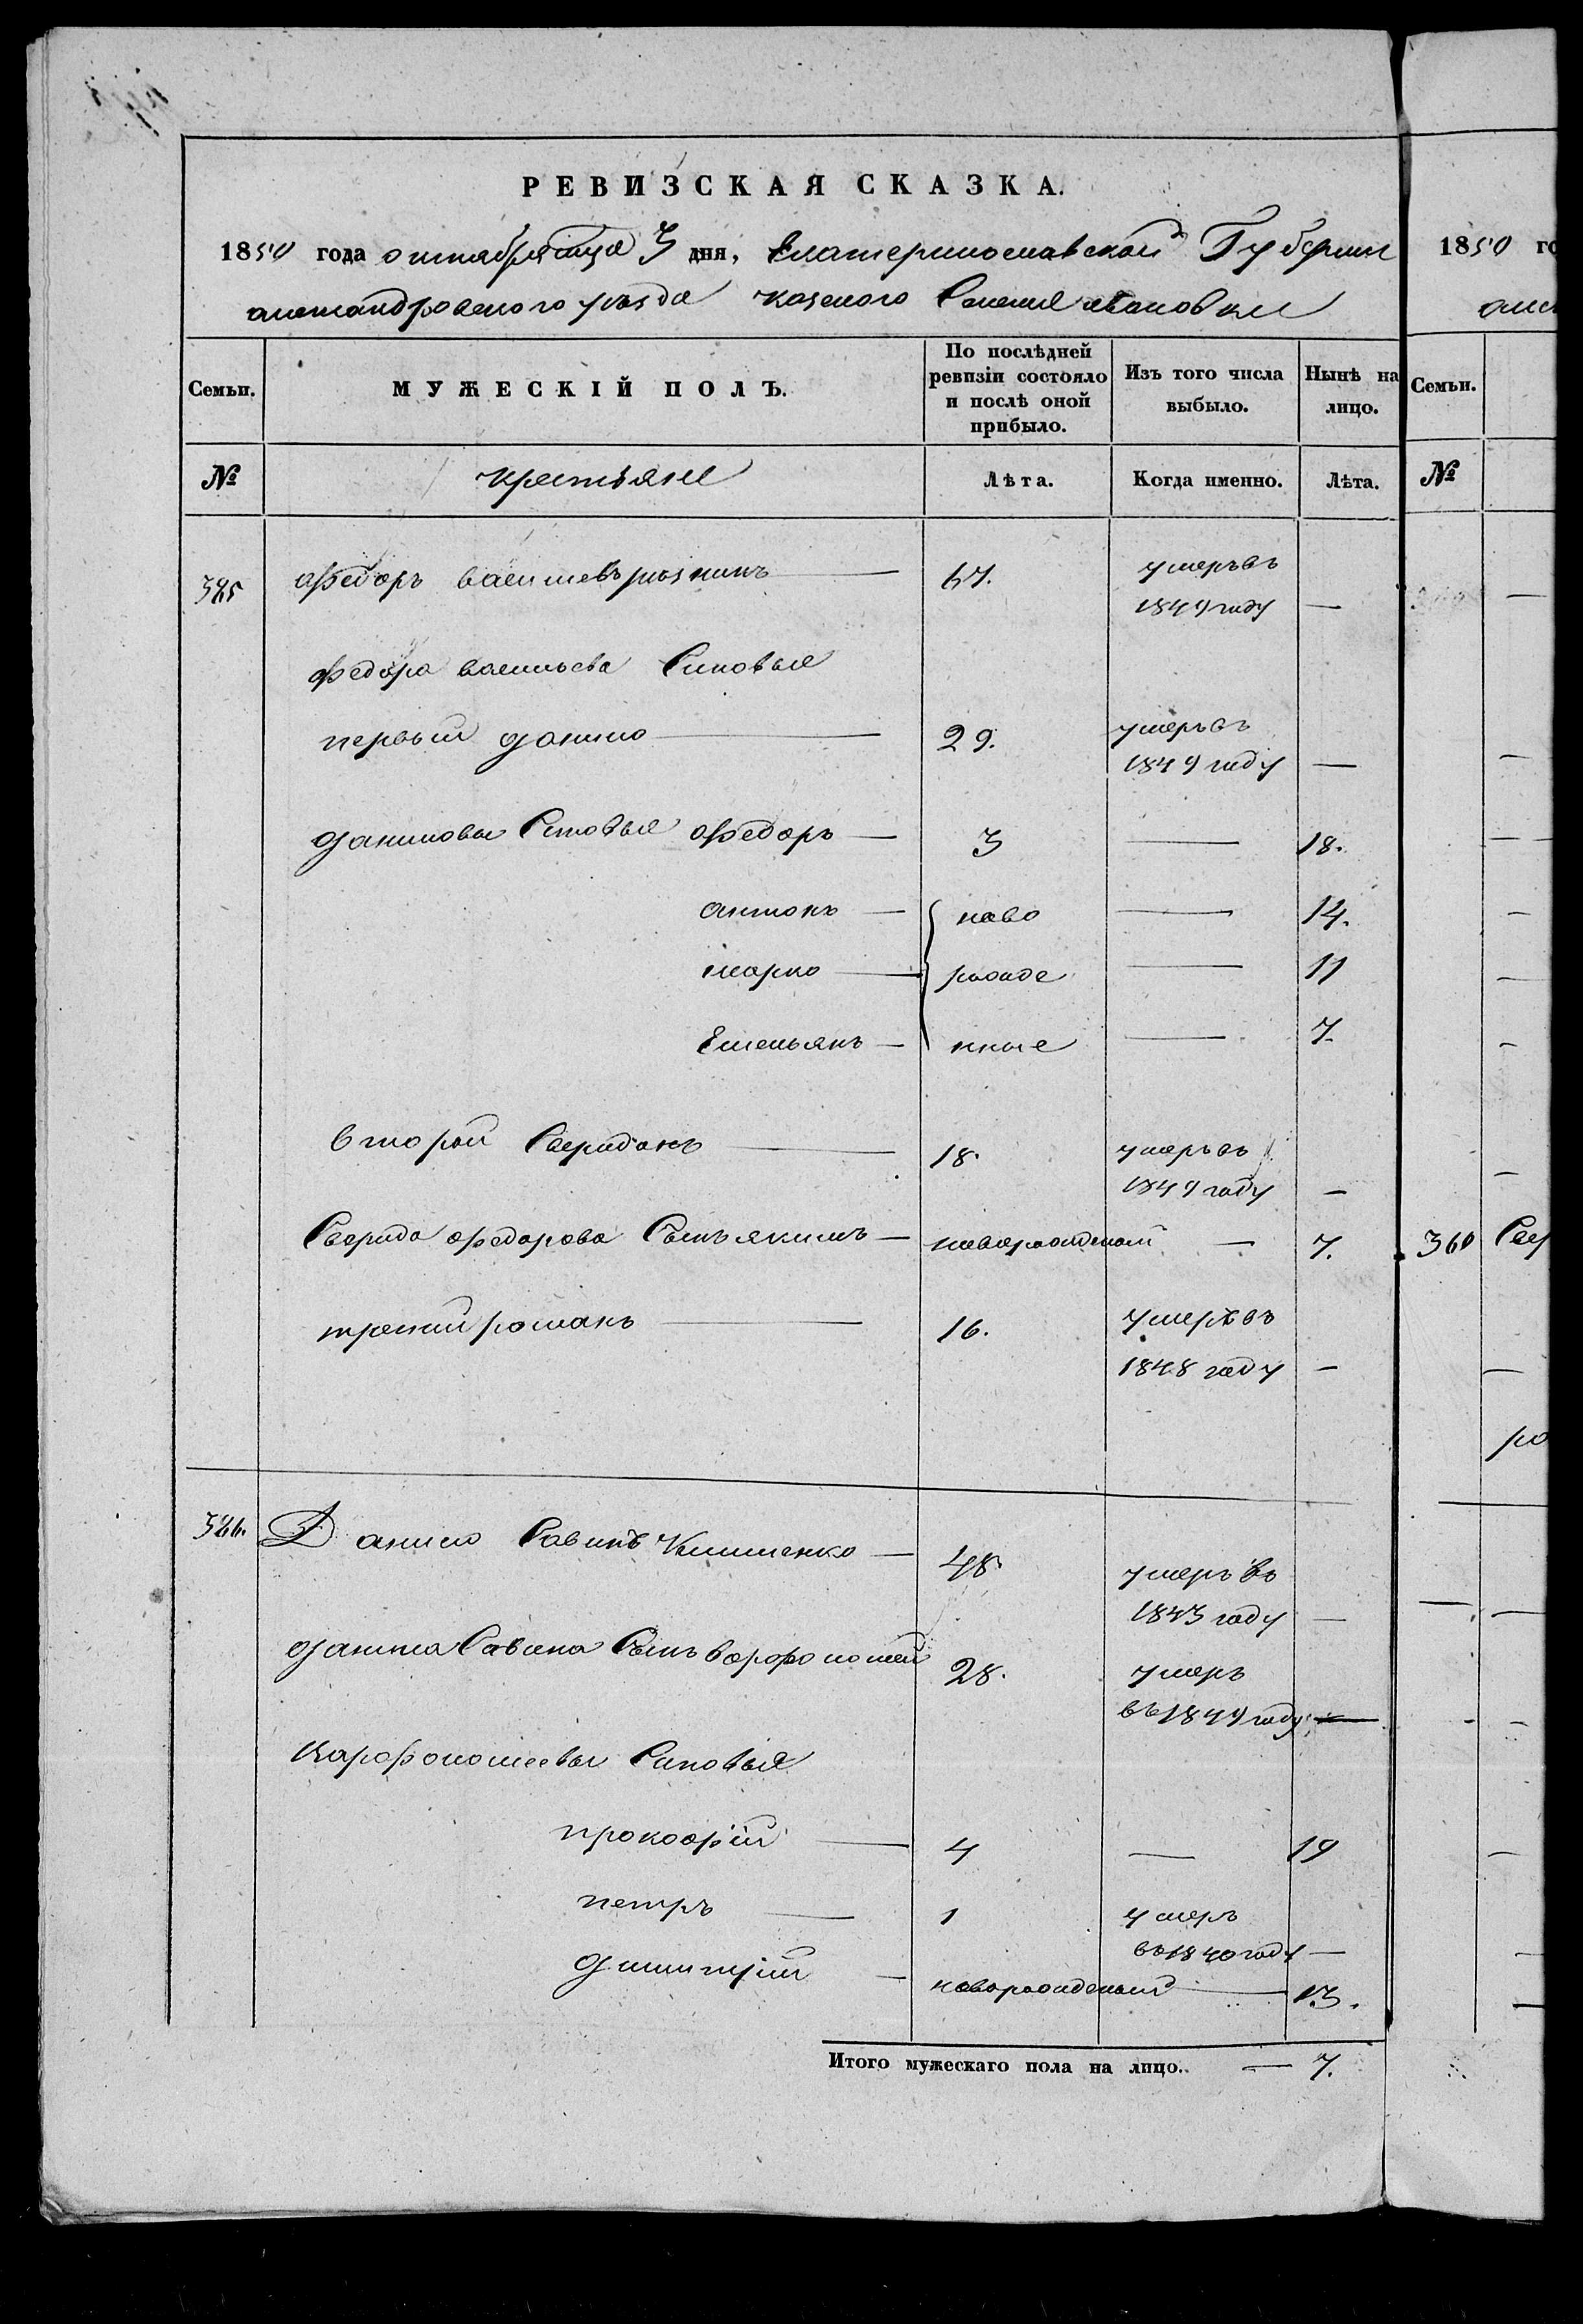 РЕВИЗСКАЯ СКАЗКА.
1850 года октября мца 3 дня, Екатеринославской Губернии
александровского уезда казеного Селения
Семьи. МУЖЕСКІЙ ПОЛЪ. По послѣдней ревизіи состояло и послѣ оной прибыло. Изъ того числа выбыло. Нынѣ на лицо.
№ крестьяне Лѣта. Когда именно. Лѣта.
385 Федоръ васильевъ 67. умеръ въ
1849 году —
Федора васильева Сыновья
первый данило — 29. умеръ въ
1849 году —
даниловы Сыновья Федоръ — 3 — 18.
антонъ — ново — 14.
марко — рожде — 11
Емельянъ — нные — 7.
второй Свиридонъ — 18. умеръ въ
1849 году —
Свирида Федорова Сынъ якимъ — новорожденый — 7.
третий романъ — 16. умеръ въ
1848 году —
386. Данило Савинъ Клименко — 48. умеръ въ
1843 году —
данила Савина Сынъ варфоломей 28. умеръ
въ 1849 году —
Варфоломеевы Сыновья
прокофій — 4 — 19
петръ — 1 умеръ
въ 1840 году —
димитрій — новорожденый — 13.
Итого мужескаго пола на лицо. — 7.
1850 го
Семьи.
№
360 Сви
ро